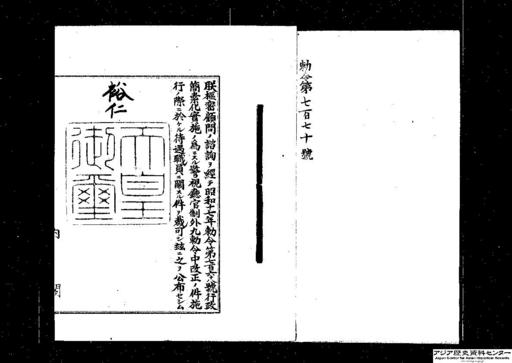 勅令第七百七十號
朕樞密顧問ノ諮詢ヲ經テ昭和十七年勅令第七百六號行政
簡素化實施ノ爲ニスル警視廳官制外九勅令中改正ノ件施
行ノ際ニ於ケル待遇職員ニ關スル件ヲ裁可シ玆ニ之ヲ公布セシム
裕仁
天皇
御璽
内閣
アジア歴史資料センター
Japan Center for Asian Historical Records